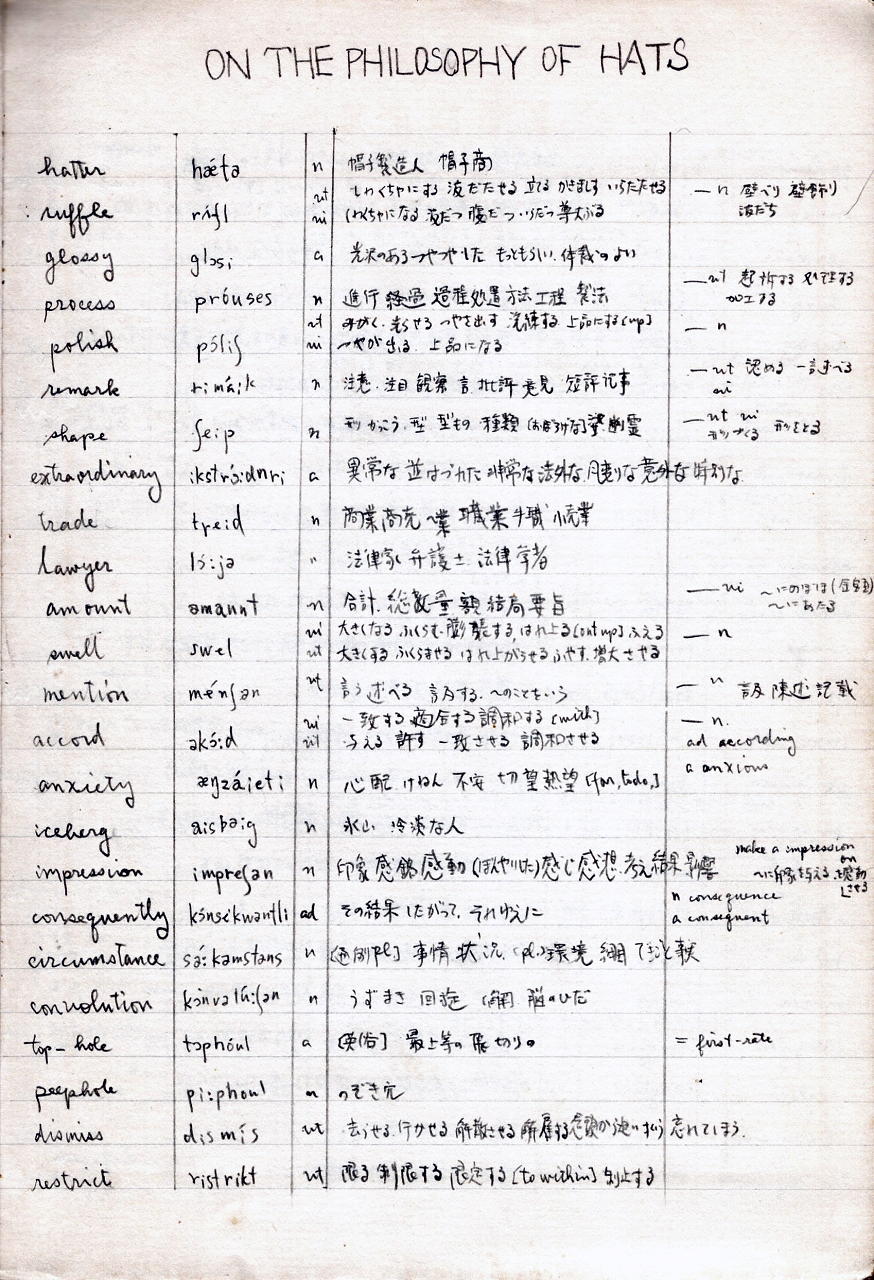 ON THE PHILOSOPHY OF HATS
hatter hǽtə n 帽子製造人 帽子商
ruffle rʌ́fl vt しわくちゃにする 波だたせる 立てる かきみだす いらだたせる — n
vi しわくちゃになる 波だつ 腹だつ いらだつ 波だち
glossy glɔsi a 光沢のある つやつやした もっともらしい 体裁のよい
process próuses n 進行 経過 過程 処置 方法 工程 製法 — vt 起訴する 処理する
加工する
polish pɔ́liʃ vt みがく 光らせる つやを出す 洗練する 上品にする [up] — n
vi つやが出る 上品になる
remark rimá:k n 注意 注目 観察 言 批評 意見 短評 記事 — vt 認める 一言すべる
vi
shape ʃeip n 形 かっこう 型 型もの 種類 [おぼろげな] 姿 幽霊 — vt vi
形づくる 形をとる
extraordinary ikstrɔ́:dnri a 異常な 並はづれた 非常な 法外な 風変りな 意外な 特別な
trade treid n 商業 商売 職業 手職 小売業
lawyer lɔ́:jə " 法律家 弁護士 法律学者
amount əmaunt n 合計 総数 量 額 結局 要旨 — vi 〜にのぼる(金額)
〜にあたる
swell swel vi 大きくなる ふくらむ 膨張する はれ上る [out up] ふえる — n
vt 大きくする ふくらませる はれ上がらせる ふやす 増大させる
mention ménʃən vt 言う 述べる 言及する 〜のことをいう — n 言及 陳述 記載
accord əkɔ́:d vi 一致する 適合する 調和する [with] — n.
vt 与える 許す 一致させる 調和させる ad according
anxiety æŋzáieti n 心配 けねん 不安 切望 熱望 [for, to do,] a anxious
iceberg aisbə:g n 氷山 冷淡な人
impression impreʃən n 印象 感銘 感動 (ぼんやりした)感じ 感想 考え 結果 影響 make a impression on
〜に印象を与える 感動させる
consequently kɔ́nsekwəntli ad その結果 したがって、それゆえに n consequence
a consequent
circumstance sə́:kəmstəns n [通例pl] 事情 状況 (pl.)環境 細目 できごと
convolution kɔ̀nvəlú:ʃən n うずまき 回旋 (解) 脳のひだ
top-hole tɔphóul a [英俗] 最上等の 飛切りの = first-rate
peephole pi:phoul n のぞき穴
dismiss dismís vt 去らせる 行かせる 解散させる 解雇する 忘れてしまう.
restrict ristrikt vt 限る 制限する 限定する [to within] 制止する